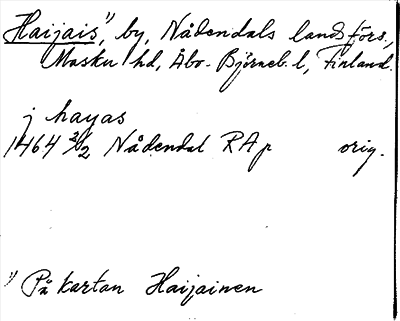 Haijais,¹⁾ by, Nådendals landsförs.,
Masku hd, Åbo-Björneb. l, Finland.
j hayas
1464 3/2 Nådendal RAp orig.
¹⁾ På kartan Haijainen